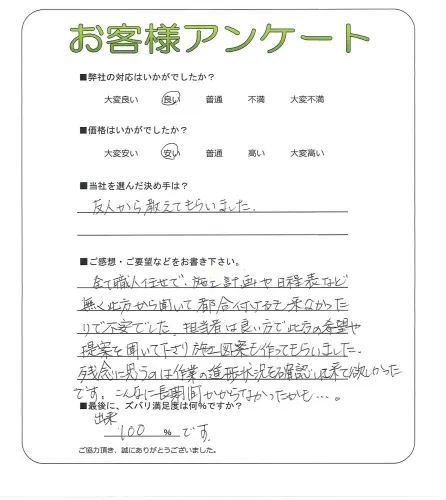 お客様アンケート
■弊社の対応はいかがでしたか？
大変良い 良い 普通 不満 大変不満
■価格はいかがでしたか？
大変安い 安い 普通 高い 大変高い
■当社を選んだ決め手は？
友人から教えてもらいました。
■ご感想・ご要望などをお書き下さい。
全て職人任せで、施工計画や日程表など
無く此方から聞いて都合付けるも来なかった
りで不安でした。担当者は良い方で此方の希望や
提案を聞いて下さり施工図案も作ってもらいました。
残念に思うのは作業の進形状況を確認しに来て欲しかった
です。こんなに長期間かからなかったかも…。
■最後に、ズバリ満足度は何%ですか？
出来
100 % です。
ご協力頂き、誠にありがとうございました。